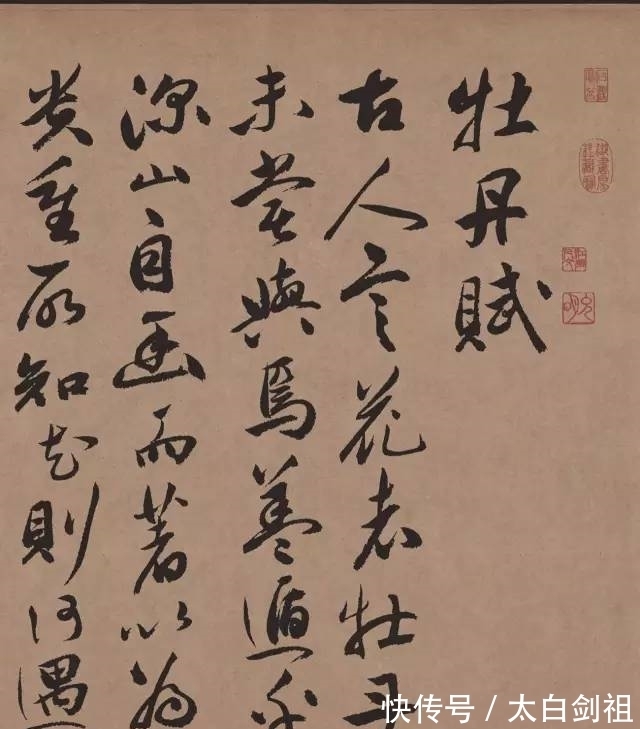 牡丹賦
古人言花者牡丹
未嘗與焉蓋遁乎
深山自幽而著以為
貴重所知花則何遇
快传号 / 太白剑祖